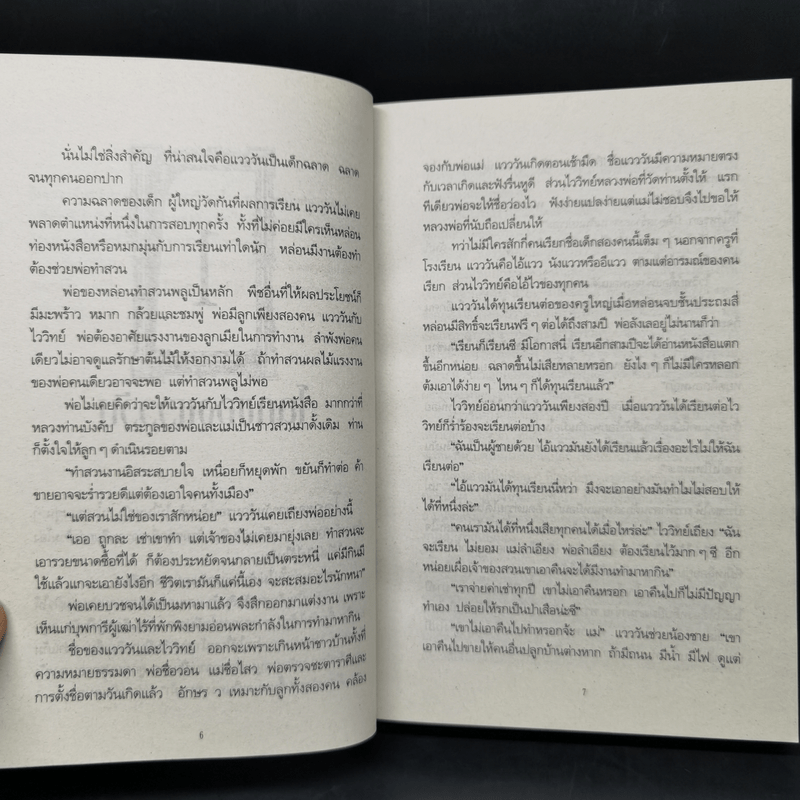 นั่นไม่ใช่สิ่งสำคัญ ที่น่าสนใจคือแวววันเป็นเด็กฉลาด ฉลาด
จนทุกคนออกปาก
ความฉลาดของเด็ก ผู้ใหญ่วัดกันที่ผลการเรียน แวววันไม่เคย
พลาดตำแหน่งที่หนึ่งในการสอบทุกครั้ง ทั้งที่ไม่ค่อยมีใครเห็นหล่อน
ท่องหนังสือหรือหมกมุ่นกับการเรียนเท่าใดนัก หล่อนมีงานต้องทำ
ต้องช่วยพ่อทำสวน
พ่อของหล่อนทำสวนพลูเป็นหลัก พืชอื่นที่ให้ผลประโยชน์ก็
มีมะพร้าว หมาก กล้วยและชมพู่ พ่อมีลูกเพียงสองคน แวววันกับ
ไววิทย์ พ่อต้องอาศัยแรงงานของลูกเมียในการทำงาน ลำพังพ่อคน
เดียวไม่อาจดูแลรักษาต้นไม้ให้งอกงามได้ ถ้าทำสวนผลไม้แรงงาน
ของพ่อคนเดียวอาจจะพอ แต่ทำสวนพลูไม่พอ
พ่อไม่เคยคิดว่าจะให้แวววันกับไววิทย์เรียนหนังสือ มากกว่าที่
หลวงท่านบังคับ ตระกูลของพ่อและแม่เป็นชาวสวนมาดั้งเดิม ท่าน
ก็ตั้งใจให้ลูก ๆ ดำเนินรอยตาม
“ทำสวนงานอิสระสบายใจ เหนื่อยก็หยุดพัก ขยันก็ทำต่อ ค้า
ขายอาจจะร่ำรวยดีแต่ต้องเอาใจคนทั้งเมือง”
“แต่สวนไม่ใช่ของเราสักหน่อย” แวววันเคยเถียงพ่ออย่างนี้
“เออ ถูกละ เช่าเขาทำ แต่เจ้าของไม่เคยมายุ่งเลย ทำสวนจะ
เอารวยขนาดซื้อที่ได้ ก็ต้องประหยัดจนกลายเป็นตระหนี่ แค่มีกินมี
ใช้แล้วแกจะเอายังไงอีก ชีวิตเรามันก็แค่นี้เอง จะสะสมอะไรนักหนา”
พ่อเคยบวชจนได้เป็นมหามาแล้ว จึงสึกออกมาแต่งงาน เพราะ
เห็นแก่บุพการีผู้เฒ่าไร้ที่พักพิงยามอ่อนพละกำลังในการทำมาหากิน
ชื่อของแวววันและไววิทย์ ออกจะเพราะเกินหน้าชาวบ้านทั้งที่
ความหมายธรรมดา พ่อชื่อวอน แม่ชื่อไสว พ่อตรวจชะตาราศีและ
การตั้งชื่อตามวันเกิดแล้ว อักษร ว เหมาะกับลูกทั้งสองคน คล้อง
6
จองกับพ่อแม่ แวววันเกิดตอนเช้ามืด ชื่อแวววันมีความหมายตรง
กับเวลาเกิดและฟังรื่นหูดี ส่วนไววิทย์หลวงพ่อที่วัดท่านตั้งให้ แรก
ทีเดียวพ่อจะให้ชื่อว่องไว ฟังง่ายแปลง่ายแต่แม่ไม่ชอบจึงไปขอให้
หลวงพ่อที่นับถือเปลี่ยนให้
ทว่าไม่มีใครสักกี่คนเรียกชื่อเด็กสองคนนี้เต็ม ๆ นอกจากครูที่
โรงเรียน แวววันคือไอ้แวว นังแววหรืออีแวว ตามแต่อารมณ์ของคน
เรียก ส่วนไววิทย์คือไอ้ไวของทุกคน
แวววันได้ทุนเรียนต่อของครูใหญ่เมื่อหล่อนจบชั้นประถมสี่
หล่อนมีสิทธิ์จะเรียนฟรี ๆ ต่อได้ถึงสามปี พ่อลังเลอยู่ไม่นานก็ว่า
“เรียนก็เรียนซี มีโอกาสนี่ เรียนอีกสามปีจะได้อ่านหนังสือแตก
ขึ้นอีกหน่อย ฉลาดขึ้นไม่เสียหลายหรอก ยังไง ๆ ก็ไม่มีใครหลอก
ต้มเอาได้ง่าย ๆ ไหน ๆ ก็ได้ทุนเรียนแล้ว”
ไววิทย์อ่อนกว่าแวววันเพียงสองปี เมื่อแวววันได้เรียนต่อไว
วิทย์ก็ร่ำร้องจะเรียนต่อบ้าง
“ฉันเป็นผู้ชายด้วย ไอ้แววมันยังได้เรียนแล้วเรื่องอะไรไม่ให้ฉัน
เรียนต่อ”
“ไอ้แววมันได้ทุนเรียนนี่หว่า มึงจะเอาอย่างมันทำไมไม่สอบให้
ได้ที่หนึ่งล่ะ”
“คนเรามันได้ที่หนึ่งเสียทุกคนได้เมื่อไหร่ล่ะ” ไววิทย์เถียง “ฉัน
จะเรียน ไม่ยอม แม่ลำเอียง พ่อลำเอียง ต้องเรียนไว้มาก ๆ ซี อีก
หน่อยเผื่อเจ้าของสวนเขาเอาคืนจะได้มีงานทำมาหากิน”
“เราจ่ายค่าเช่าทุกปี เขาไม่เอาคืนหรอก เอาคืนไปก็ไม่มีปัญญา
ทำเอง ปล่อยให้รกเป็นป่าเสือน่ะซี”
“เขาไม่เอาคืนไปทำหรอกจ้ะ แม่” แวววันช่วยน้องชาย “เขา
เอาคืนไปขายให้คนอื่นปลูกบ้านต่างหาก ถ้ามีถนน มีน้ำ มีไฟ ดูแต่
7